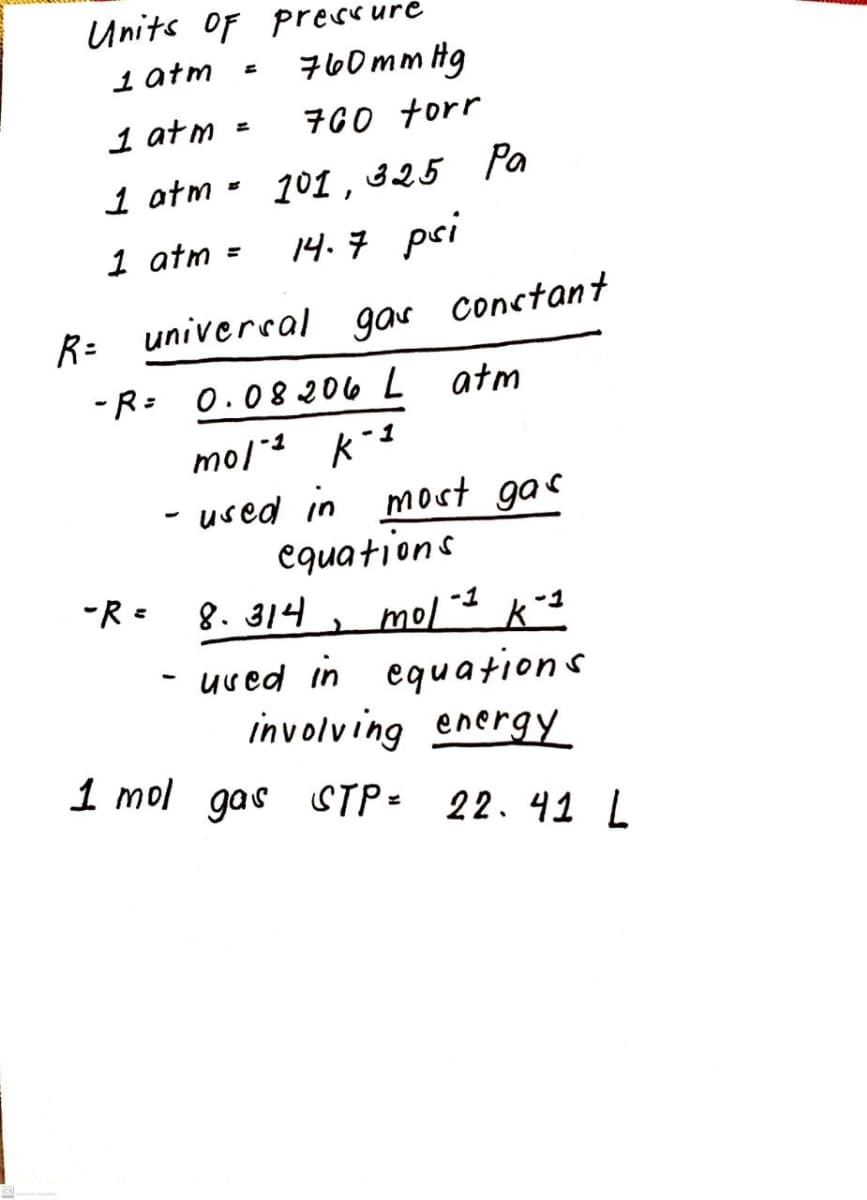 Units OF pressure
1 atm = 760 mm Hg
1 atm = 760 torr
1 atm = 101,325 Pa
1 atm = 14.7 psi
R= universal gas constant
-R= 0.08206 L atm
mol⁻¹ K⁻¹
- used in most gas
equations
-R= 8.314 , mol⁻¹ K⁻¹
- used in equations
involving energy
1 mol gas STP= 22.41 L
CS